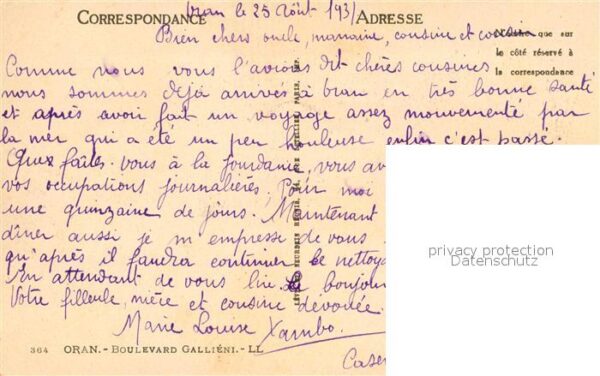 CORRESPONDANCE
ADRESSE
Oran le 25 Août 1931
Bien chers oncle, marraine, cousine et cousin
que sur
le côté réservé à
la correspondance
Comme nous vous l'avions dit chères cousines
nous sommes déjà arrivés à Oran en très bonne santé
et après avoir fait un voyage assez mouvementé par
la mer qui a été un peu houleuse enfin c'est passé.
faîtes-vous à la vous av
vos occupations journalières. Pour moi
une quinzaine de jours. Maintenant
dîner aussi je m'empresse de vous
qu'après il faudra continuer le nettoya
En attendant de vous lire le bonjour
Votre filleule, nièce et cousine dévouée.
Marie Louise Xambo.
Caser
364 ORAN.- BOULEVARD GALLIÉNI.- LL
privacy protection
Datenschutz